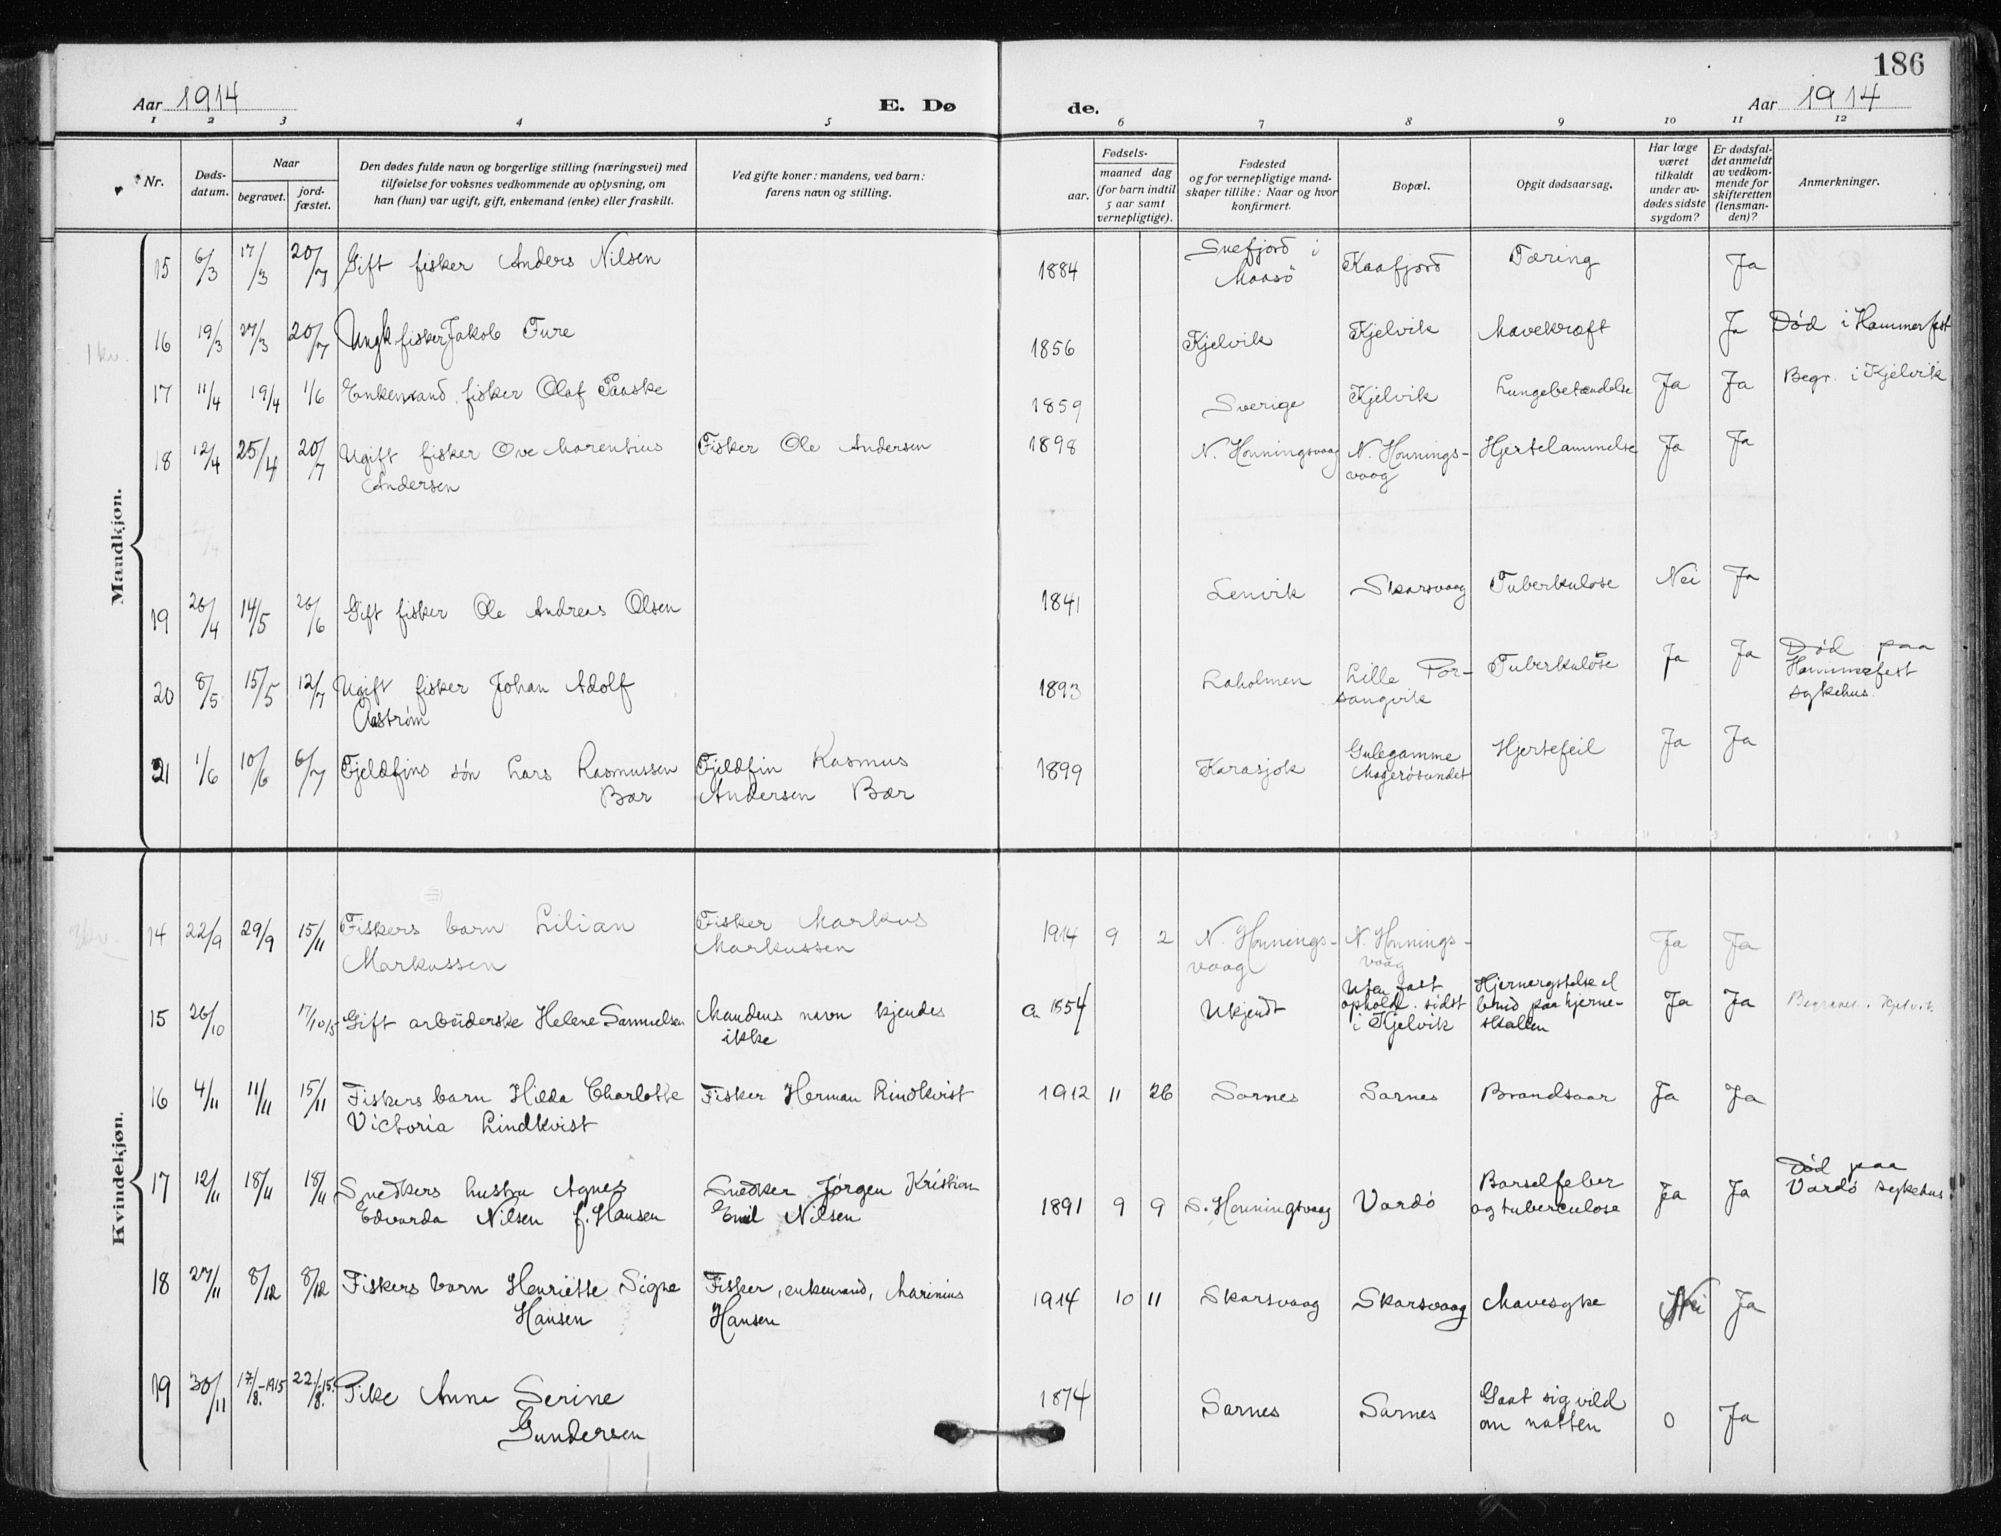 186
Aar 1914 E. Dø de. Aar 1914
1 2 3 4 5 6 7 8 9 10 11 12
Nr.
Døds-
datum.
Naar
begravet.
jord-
fæstet.
Den dødes fulde navn og borgerlige stilling (næringsvei) med
tilføielse for voksnes vedkommende av oplysning, om
han (hun) var ugift, gift, enkemand (enke) eller fraskilt.
Ved gifte koner: mandens, ved barn:
farens navn og stilling.
Fødsels-
aar.
maaned dag
(for barn indtil
5 aar samt
vernepligtige).
Fødested
og for vernepligtige mand-
skaper tillike: Naar og hvor
konfirmert.
Bopæl.
Opgit dødsaarsag.
Har læge
været
tilkaldt
under av-
dødes sidste
sygdom?
Er dødsfal-
det anmeldt
av vedkom-
mende for
skifteretten
(lensman-
den)?
Anmerkninger.
Mandkjøn.
15 6/3 17/3 20/7 Gift fisker Anders Nilsen 1884 Snefjord i
Maasö Kaafjord Tæring Ja
1 kv.
16 19/3 27/3 20/7 Ungk fisker Jakob Ture 1856 Kjelvik Kjelvik Mavekræft Ja Död i Hammerfest
17 11/4 19/4 1/6 Enkemand fisker Olaf Paaske 1859 Sverige Kjelvik Lungebetændelse Ja Ja Begr. i Kjelvik
18 12/4 25/4 20/7 Ugift fisker Ove Marentius
Andersen Fisker Ole Andersen 1898 N. Honningsvaag N. Honnings-
vaag Hjertelammelse Ja Ja
19 26/4 14/5 26/6 Gift fisker Ole Andreas Olsen 1841 Lenvik Skarsvaag Tuberkulose Nei Ja
20 8/5 15/5 12/7 Ugift fisker Johan Adolf
Aastrøm 1893 Laholmen Lille Por-
sangvik Tuberkulöse Ja Ja Död paa
Hammerfest
sykehus.
21 1/6 10/6 6/7 Fjeldfins sön Lars Rasmussen
Bær Fjeldfin Rasmus
Andersen Bær 1899 Karasjok Gulegamme
Magerösundet Hjertefeil Ja Ja
Kvindekjøn.
14 22/9 29/9 15/11 Fiskers barn Lilian
Markussen Fisker Markus
Markussen 1914 9 2 N. Honnings-
vaag N. Honnings-
vaag Ja Ja
15 26/10 17/10 15 Gift arbeiderske Helene Samuelsen Mandens navn kjendes
ikke ca 1854 Ukjendt Uten fast
ophold. sidst
i Kjelvik Hjernerystelse el
brud paa hjerne-
skallen Ja Ja Begravet i Kjelvik
16 4/11 11/11 15/11 Fiskers barn Hilda Charlotte
Victoria Lindkvist Fisker Herman Lindkvist 1912 11 26 Sarnes Sarnes Brandsaar Ja Ja
17 12/11 18/11 18/11 Snedkers hustru Agnes
Edvarda Nilsen f. Hansen Snedker Jørgen Kristian
Emil Nilsen 1891 9 9 S. Honningsvaag Vardö Barselfeber
og tuberculose Ja Ja Död paa
Vardö sykehus
18 27/11 8/12 8/12 Fiskers barn Henriette Signe
Hansen Fisker, enkemand, Marinius
Hansen 1914 10 11 Skarsvaag Skarsvaag Mavesyke Nei Ja
19 30/11 17/8.-1915 22/8.-15. Pike Anna Serine
Gundersen 1874 Sarnes Sarnes Gaat sig vild
om natten 0 Ja